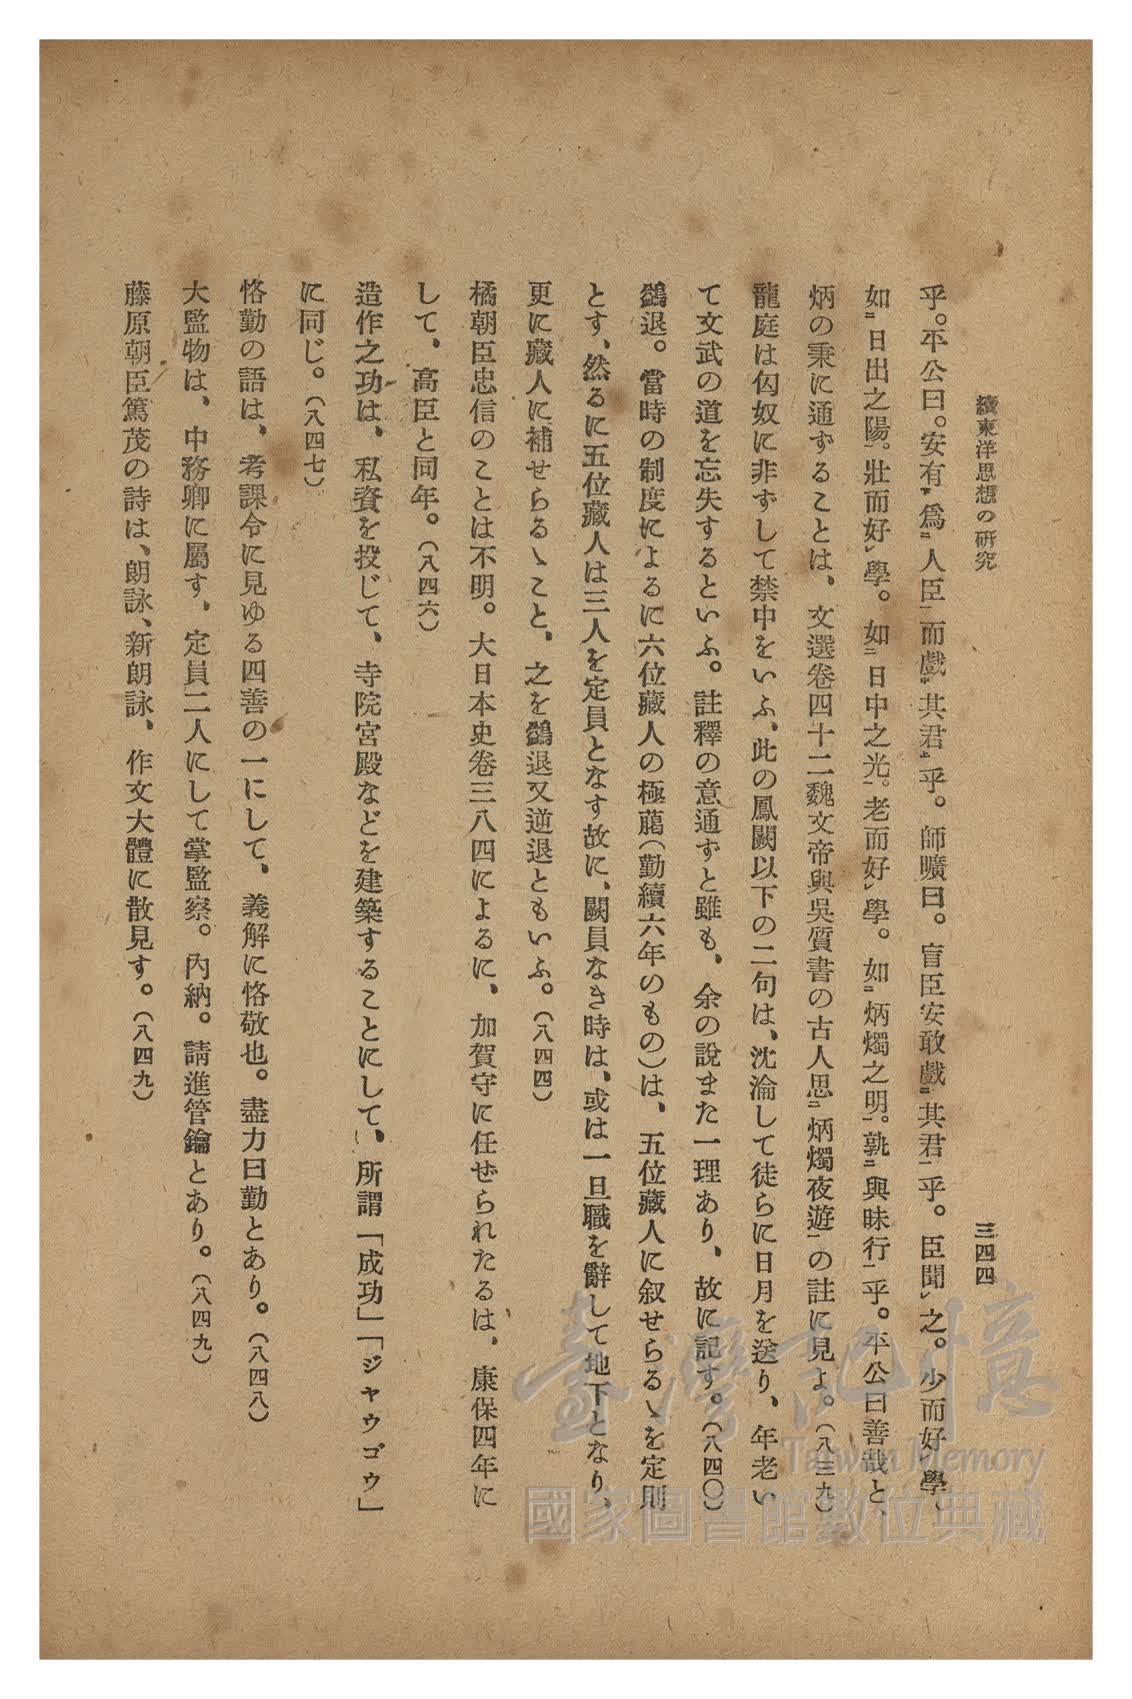 續東洋思想の研究
三四四
乎。平公曰。安有爲人臣而戲其君乎。師曠曰。盲臣安敢戲其君乎。臣聞之。少而好學、
如日出之陽。壯而好學。如日中之光。老而好學。如炳燭之明。孰與昧行乎。平公曰善哉と、
炳の秉に通ずることは、文選卷四十二魏文帝與吳質書の古人思炳燭夜遊の註に見よ。(八三九)
龍庭は匈奴に非ずして禁中をいふ、此の鳳闕以下の二句は、沈淪して徒らに日月を送り、年老い
て文武の道を忘失するといふ。註釋の意通ずと雖も、余の說また一理あり、故に記す。(八四〇)
鷁退。當時の制度によるに六位藏人の極﨟(勤續六年のもの)は、五位藏人に叙せらるゝを定則
とす、然るに五位藏人は三人を定員となす故に、闕員なき時は、或は一旦職を辭して地下となり、
更に藏人に補せらるゝこと、之を鷁退又逆退ともいふ。(八四四)
橘朝臣忠信のことは不明。大日本史卷三八四によるに、加賀守に任ぜられたるは、康保四年に
して、高臣と同年。(八四六)
造作之功は、私資を投じて、寺院宮殿などを建築することにして、所謂「成功」「ジャウゴウ」
に同じ。(八四七)
恪勤の語は、考課令に見ゆる四善の一にして、義解に恪敬也。盡力曰勤とあり。(八四八)
大監物は、中務卿に屬す、定員二人にして掌監察。內納。請進管鑰とあり。(八四九)
藤原朝臣篤茂の詩は、朗詠、新朗詠、作文大體に散見す。(八四九)
臺灣記憶
Taiwan Memory
國家圖書館數位典藏